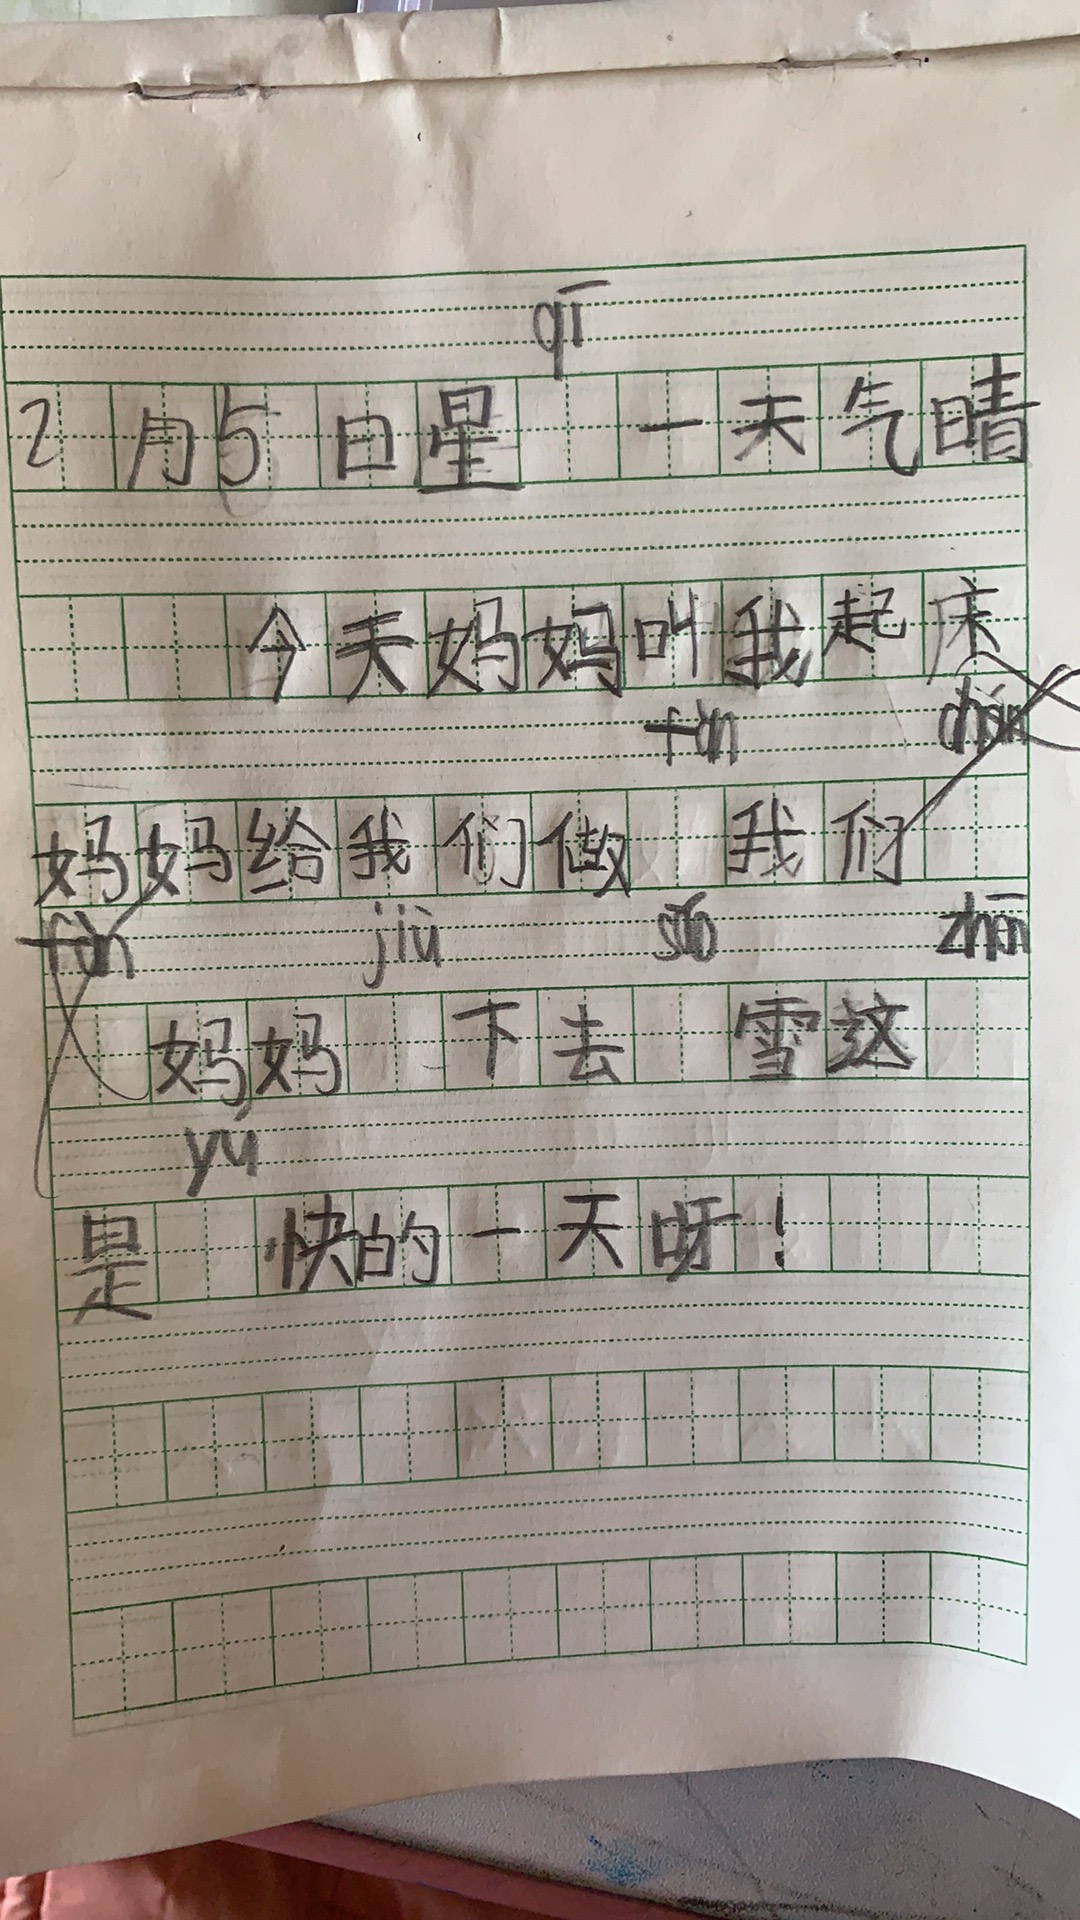 qī
2月5日星 一天气晴
今天妈妈叫我起床
fàn
妈妈给我们做 我们
fàn jiù sǎo
妈妈 下去 雪这
yú
是 快的一天呀！